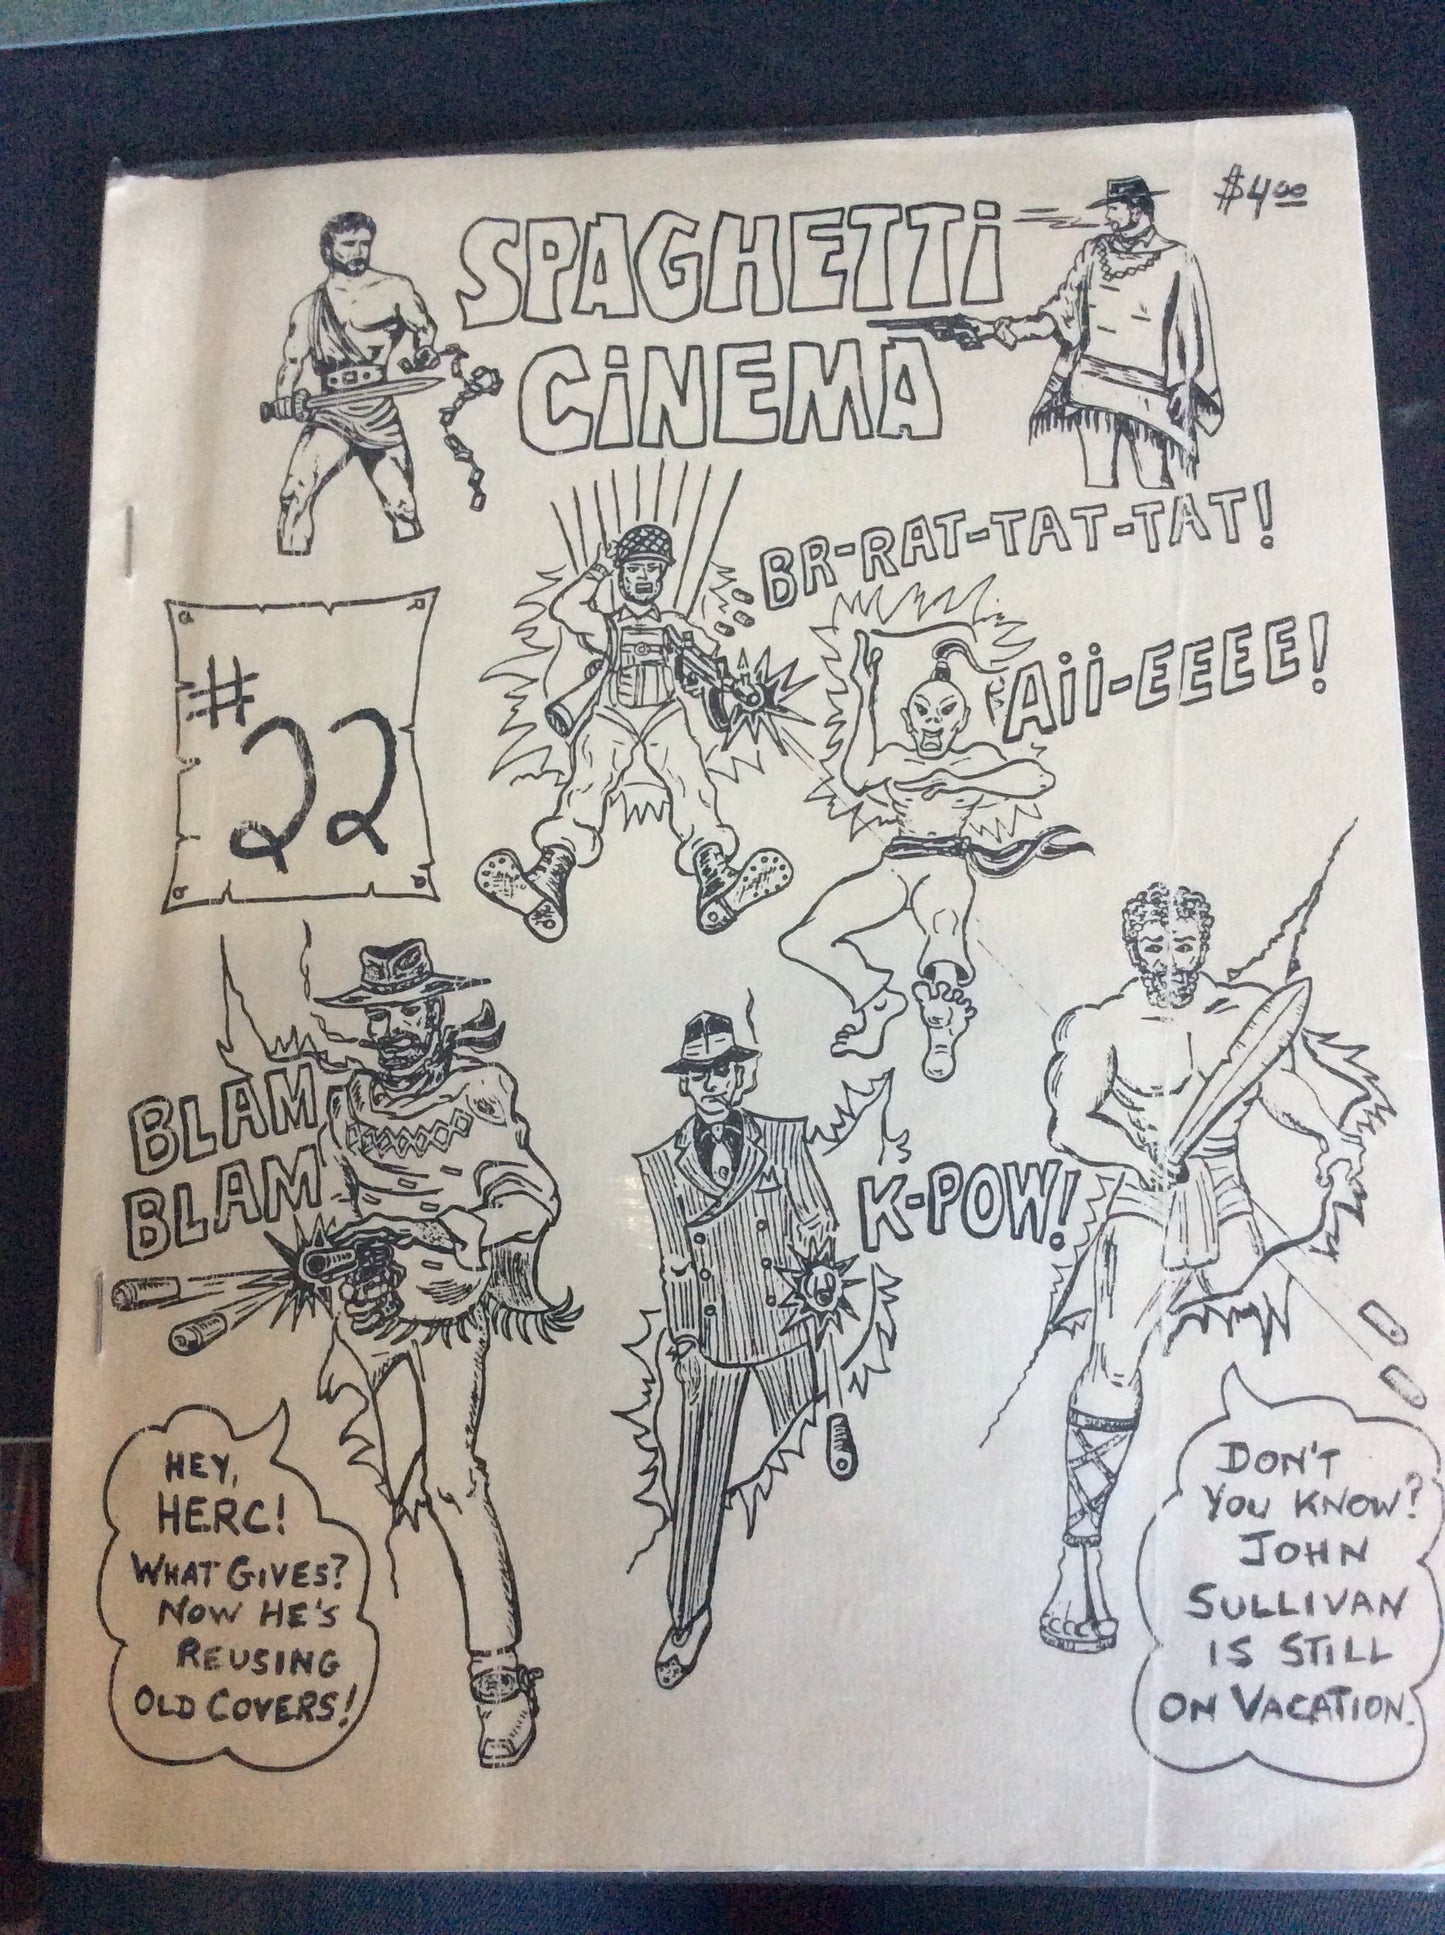 $4.00
SPAGHETTi
CiNEMA
BR-RAT-TAT-TAT!
Aii-EEEE!
#
22
BLAM
BLAM
K-POW!
HEY,
HERC!
WHAT GIVES?
NOW HE'S
REUSING
OLD COVERS!
DON'T
YOU KNOW?
JOHN
SULLIVAN
IS STILL
ON VACATION.